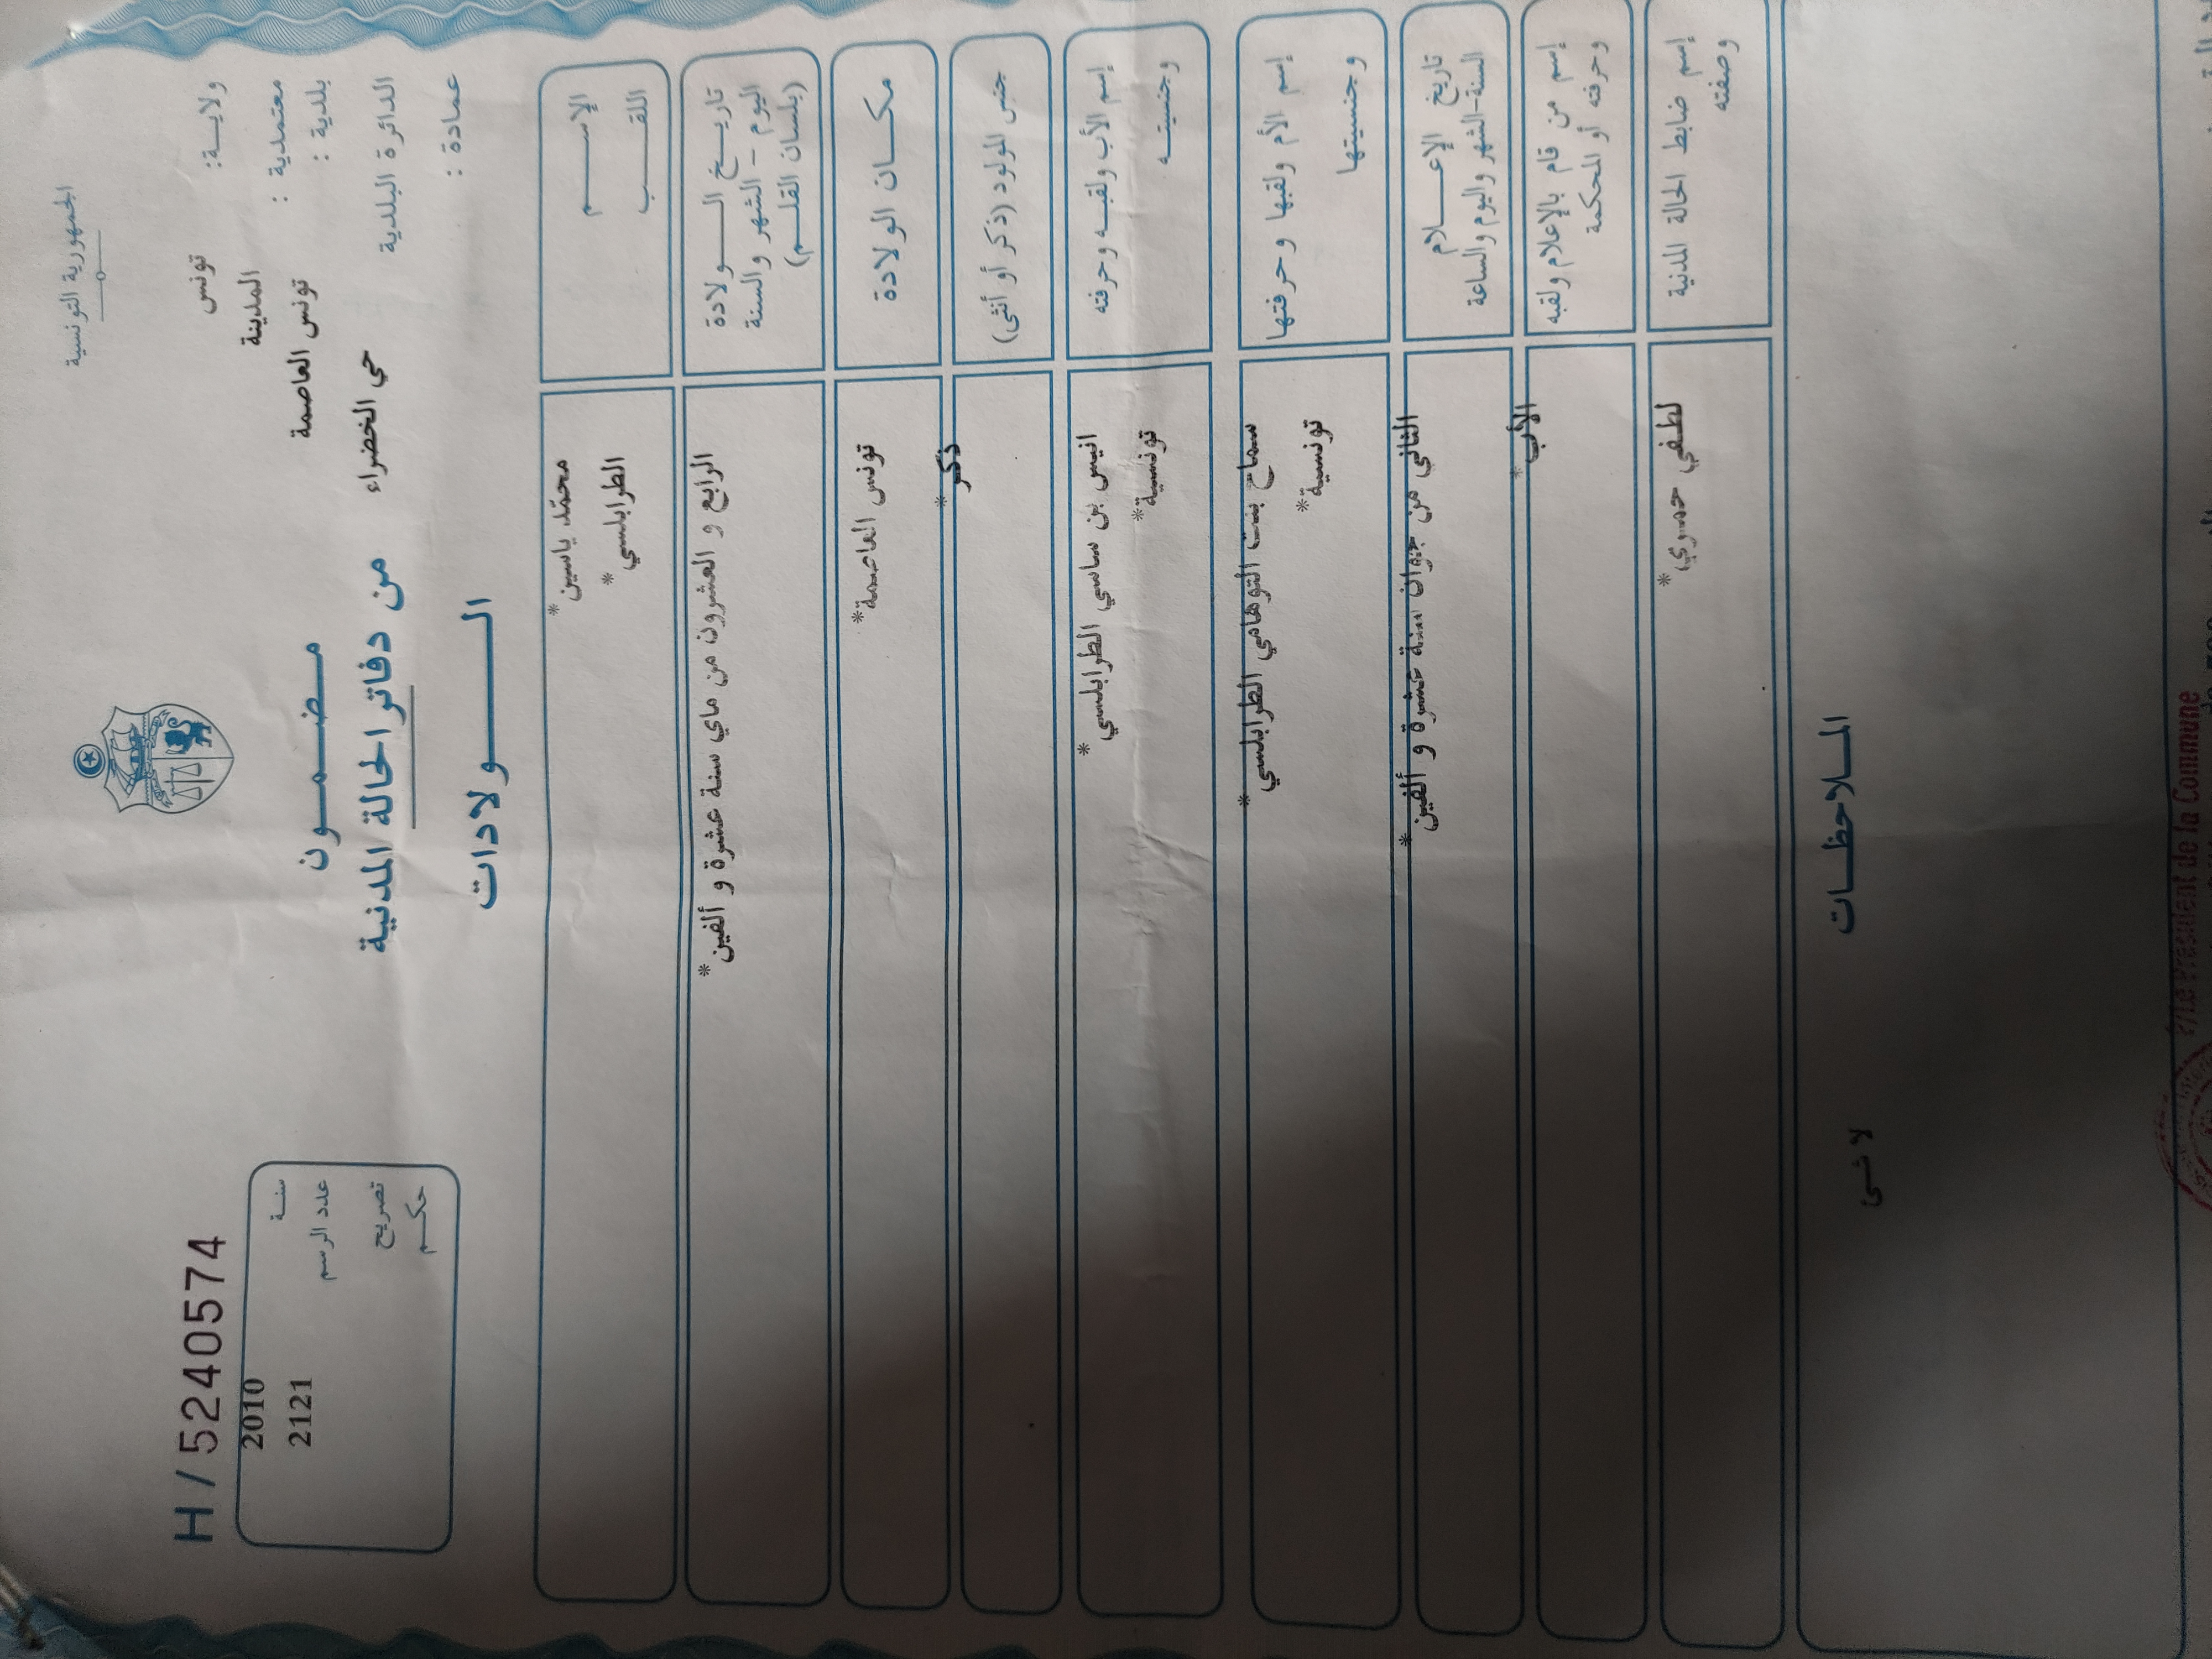 الجمهورية التونسية
H/5240574
ولايـــة: تونس
معتمدية : المدينة
بلدية : تونس العاصمة
الدائرة البلدية حي الخضراء
عمادة :
سنـــة 2010
عدد الرسم 2121
تصريح
حكـــم
مـضـمـــون
من دفاتر الحالة المدنية
الـــــولادات
الإســــــم محمّد ياسين*
اللقـــــب الطرابلسي*
تاريـــخ الـــــولادة
اليوم - الشهر والسنة
(بلسان القلـــم)
الرابع و العشرون من ماي سنة عشرة و ألفين*
مكـــان الولادة
تونس العاصمة*
جنس المولود (ذكر أو أنثى)
ذكر*
إسم الأب ولقبـــه وحرفته
انيس بن ساسي الطرابلسي*
وجنسيتـــه
تونسية*
إسم الأم ولقبها وحرفتها
سماح بنت التوهامي الطرابلسي*
وجنسيتها
تونسية*
تاريخ الإعـــــلام
السنة-الشهر واليوم والساعة
الثاني من جوان سنة عشرة و ألفين*
إسم من قام بالإعلام ولقبه
وحرفته أو المحكمة
الأب*
إسم ضابط الحالة المدنية
وصفته
لطفي حمدوي*
المـــلاحظـــات
لا شى
P/Le Président de la Commune